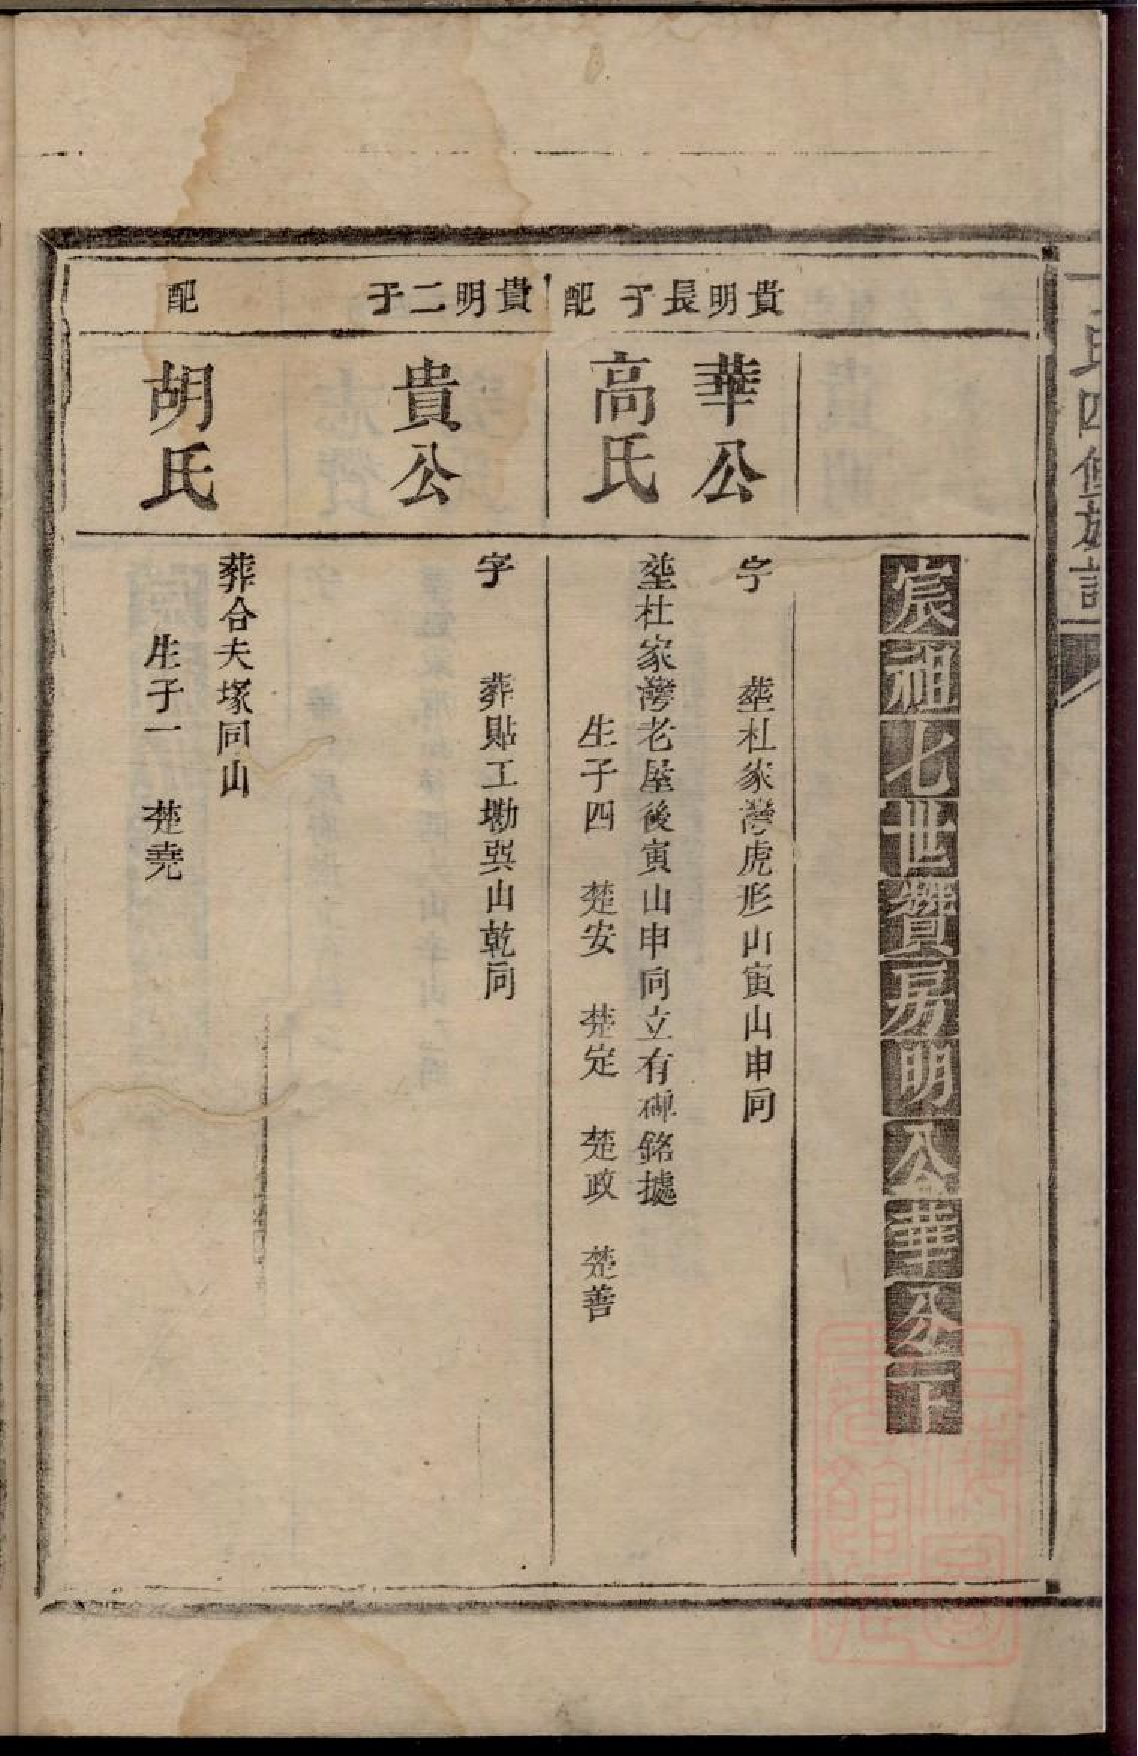 氏四修族譜
宸祖七世贊房明公華公下
貴明長子
華公
字 塟杜家灣虎形山寅山申向
配
高氏
塟杜家灣老屋後寅山申向立有碑銘據
生子四 楚安 楚定 楚政 楚善
貴明二子
貴公
字 葬貼工塝巽山乾向
配
胡氏
葬合夫塚同山
生子一 楚堯